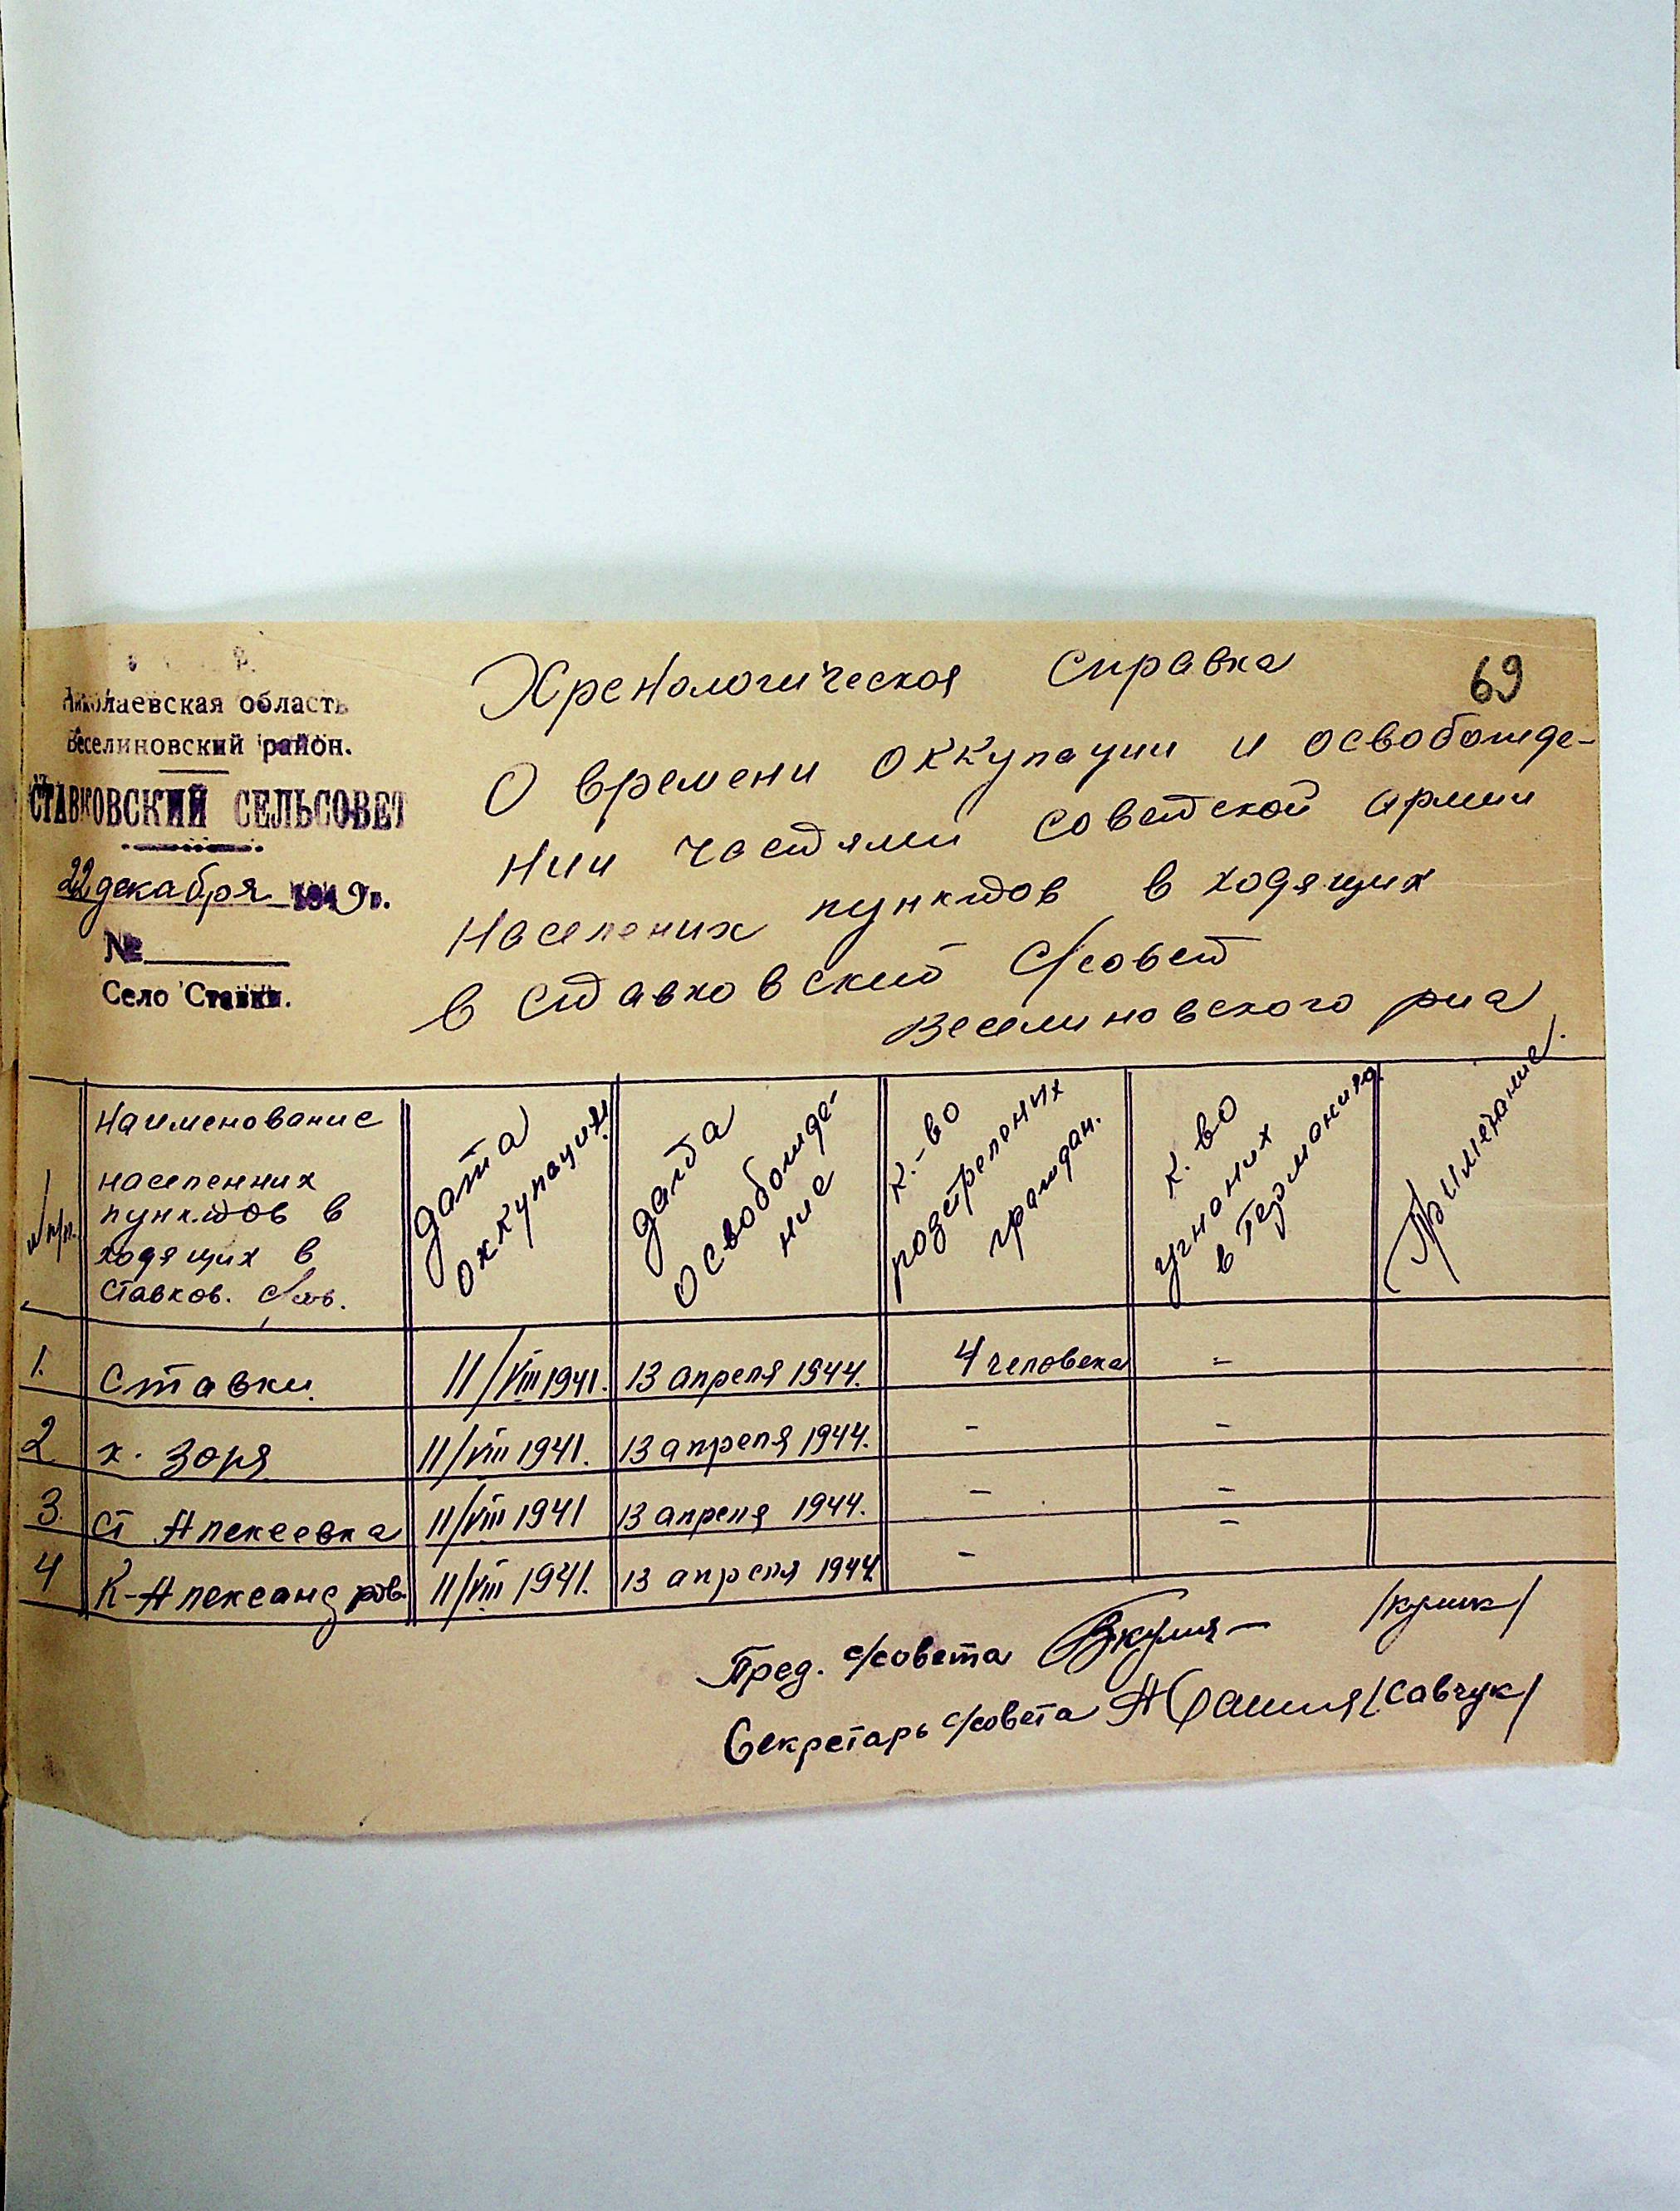 Николаевская область
Веселиновский район.
СТАВКОВСКИЙ СЕЛЬСОВЕТ
22 декабря 1949 г.
№
Село Ставки.
69
Хренологическоя справка
О времени оккупации и освобожде-
нии частями советской армии
населених пунктов в ходящих
в Ставковский с/совет
Веселиновского р-на
п/п.
Наименование
населенних
пунктов в
ходящих в
Ставков. с/сов.
дата
оккупации
дата
освобожде-
ние
К.-во
розстреленых
граждан.
К. во
угнаних
в Германию.
Примечание.
1. Ставки. 11/VIII 1941. 13 апреля 1944. 4 человека -
2 х. Зоря 11/VIII 1941. 13 апреля 1944. - -
3. Ст Алексеевка 11/VIII 1941 13 апреля 1944. - -
4 К-Александров. 11/VIII 1941. 13 апреля 1944 - -
Пред. с/совета
Секретарь с/совета /Савчук/